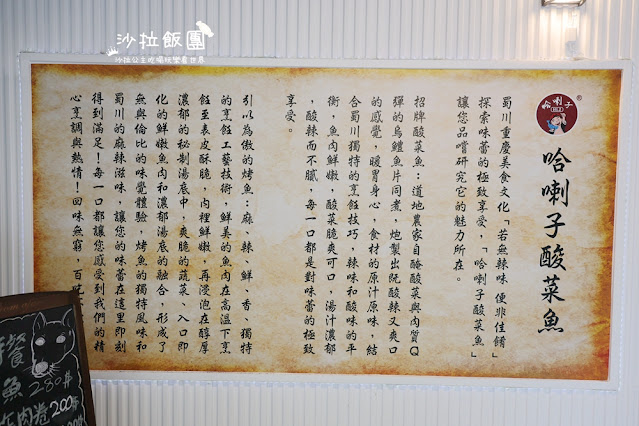 沙拉飯團
沙拉公主吃喝玩樂看世界
哈喇子
哈喇子酸菜魚
蜀川重慶美食文化「若無辣味 便非佳餚」
探索味蕾的極致享受，「哈喇子酸菜魚」
讓您品嚐研究它的魅力所在。
招牌酸菜魚：道地農家自醃酸菜與肉質Q
彈的烏鱧魚片同煮，炮製出既酸辣又爽口
的感覺，暖胃身心，食材的原汁原味，結
合蜀川獨特的烹飪技巧，辣味和酸味的平
衡，魚肉鮮嫩，酸菜脆爽可口，湯汁濃郁
，酸辣而不膩，每一口都是對味蕾的極致
享受。
引以為傲的烤魚：麻、辣、鮮、香、獨特
的烹飪工藝技術，鮮美的魚肉在高溫下烹
飪至表皮酥脆，內裡鮮嫩，再浸泡在醇厚
濃郁的秘制湯底中，爽脆的蔬菜、入口即
化的鮮嫩魚肉和濃郁湯底的融合，形成了
無與倫比的味覺體驗，烤魚的獨特風味和
蜀川的麻辣滋味，讓您的味蕾在這里即刻
得到滿足！每一口都讓您感受到我們的精
心烹調與熱情！回味無窮，百
餐
魚 280元
肉卷 200